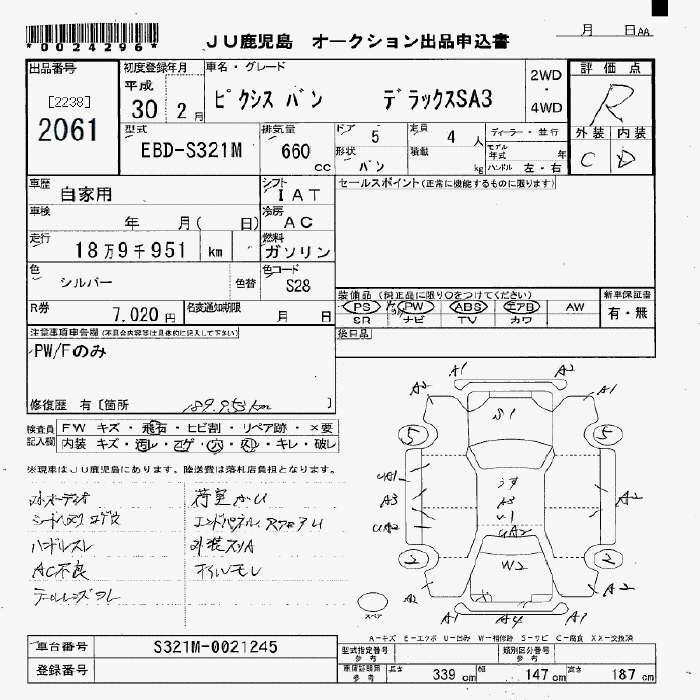 *0024296*
JU鹿児島 オークション出品申込書
月 日 AA
出品番号 初度登録年月 車名・グレード 2WD ・ 4WD 評価点
[2238] 2061
平成 30 2月 ピクシス バン デラックスSA3 R
型式 排気量 ドア 定員 ディーラー・並行 外装 内装
EBD-S321M 660 cc 5 4 人 C D
形状 バン 積載 kg モデル年式 年 ハンドル 左・右
車歴 自家用 シフト IAT セールスポイント(正常に機能するものに限ります)
車検 年 月( 日) 冷房 AC
走行 18万9千951 km 燃料 ガソリン
色 シルバー 色替 色コード S28
装備品(純正品に限り○をつけてください) 新車保証書
PS PW ABS エアB AW 有・無
SR ナビ TV カワ
R券 7,020円 名変通知期限 月 日
後日品
注意事項申告欄(不具合内容等は具体的に記入して下さい)
PW/Fのみ
修復歴 有〔箇所 189,953km 〕
検査員記入欄 FW キズ・飛石・ヒビ割・リペア跡・×要
内装 キズ・汚レ・コゲ・穴・スレ・キレ・破レ
※現車はJU鹿児島にあります。陸送費は落札店負担となります。
荷室
ハンドルスレ
AC不良
A2 A2 A1 A1
S1
5 5
UA1 A3 UA2
うす A3 U1 UA2
A2
W2
2 2
A2 A2
スペア
A1 A4 A1
A-キズ E-エクボ U-凹み W-補修跡 S-サビ C-腐食 XX-交換済
車台番号 S321M-0021245
登録番号
型式指定番号 参考 類別区分番号 参考
車庫証明用 参考 長さ 339 cm 幅 147 cm 高さ 187 cm